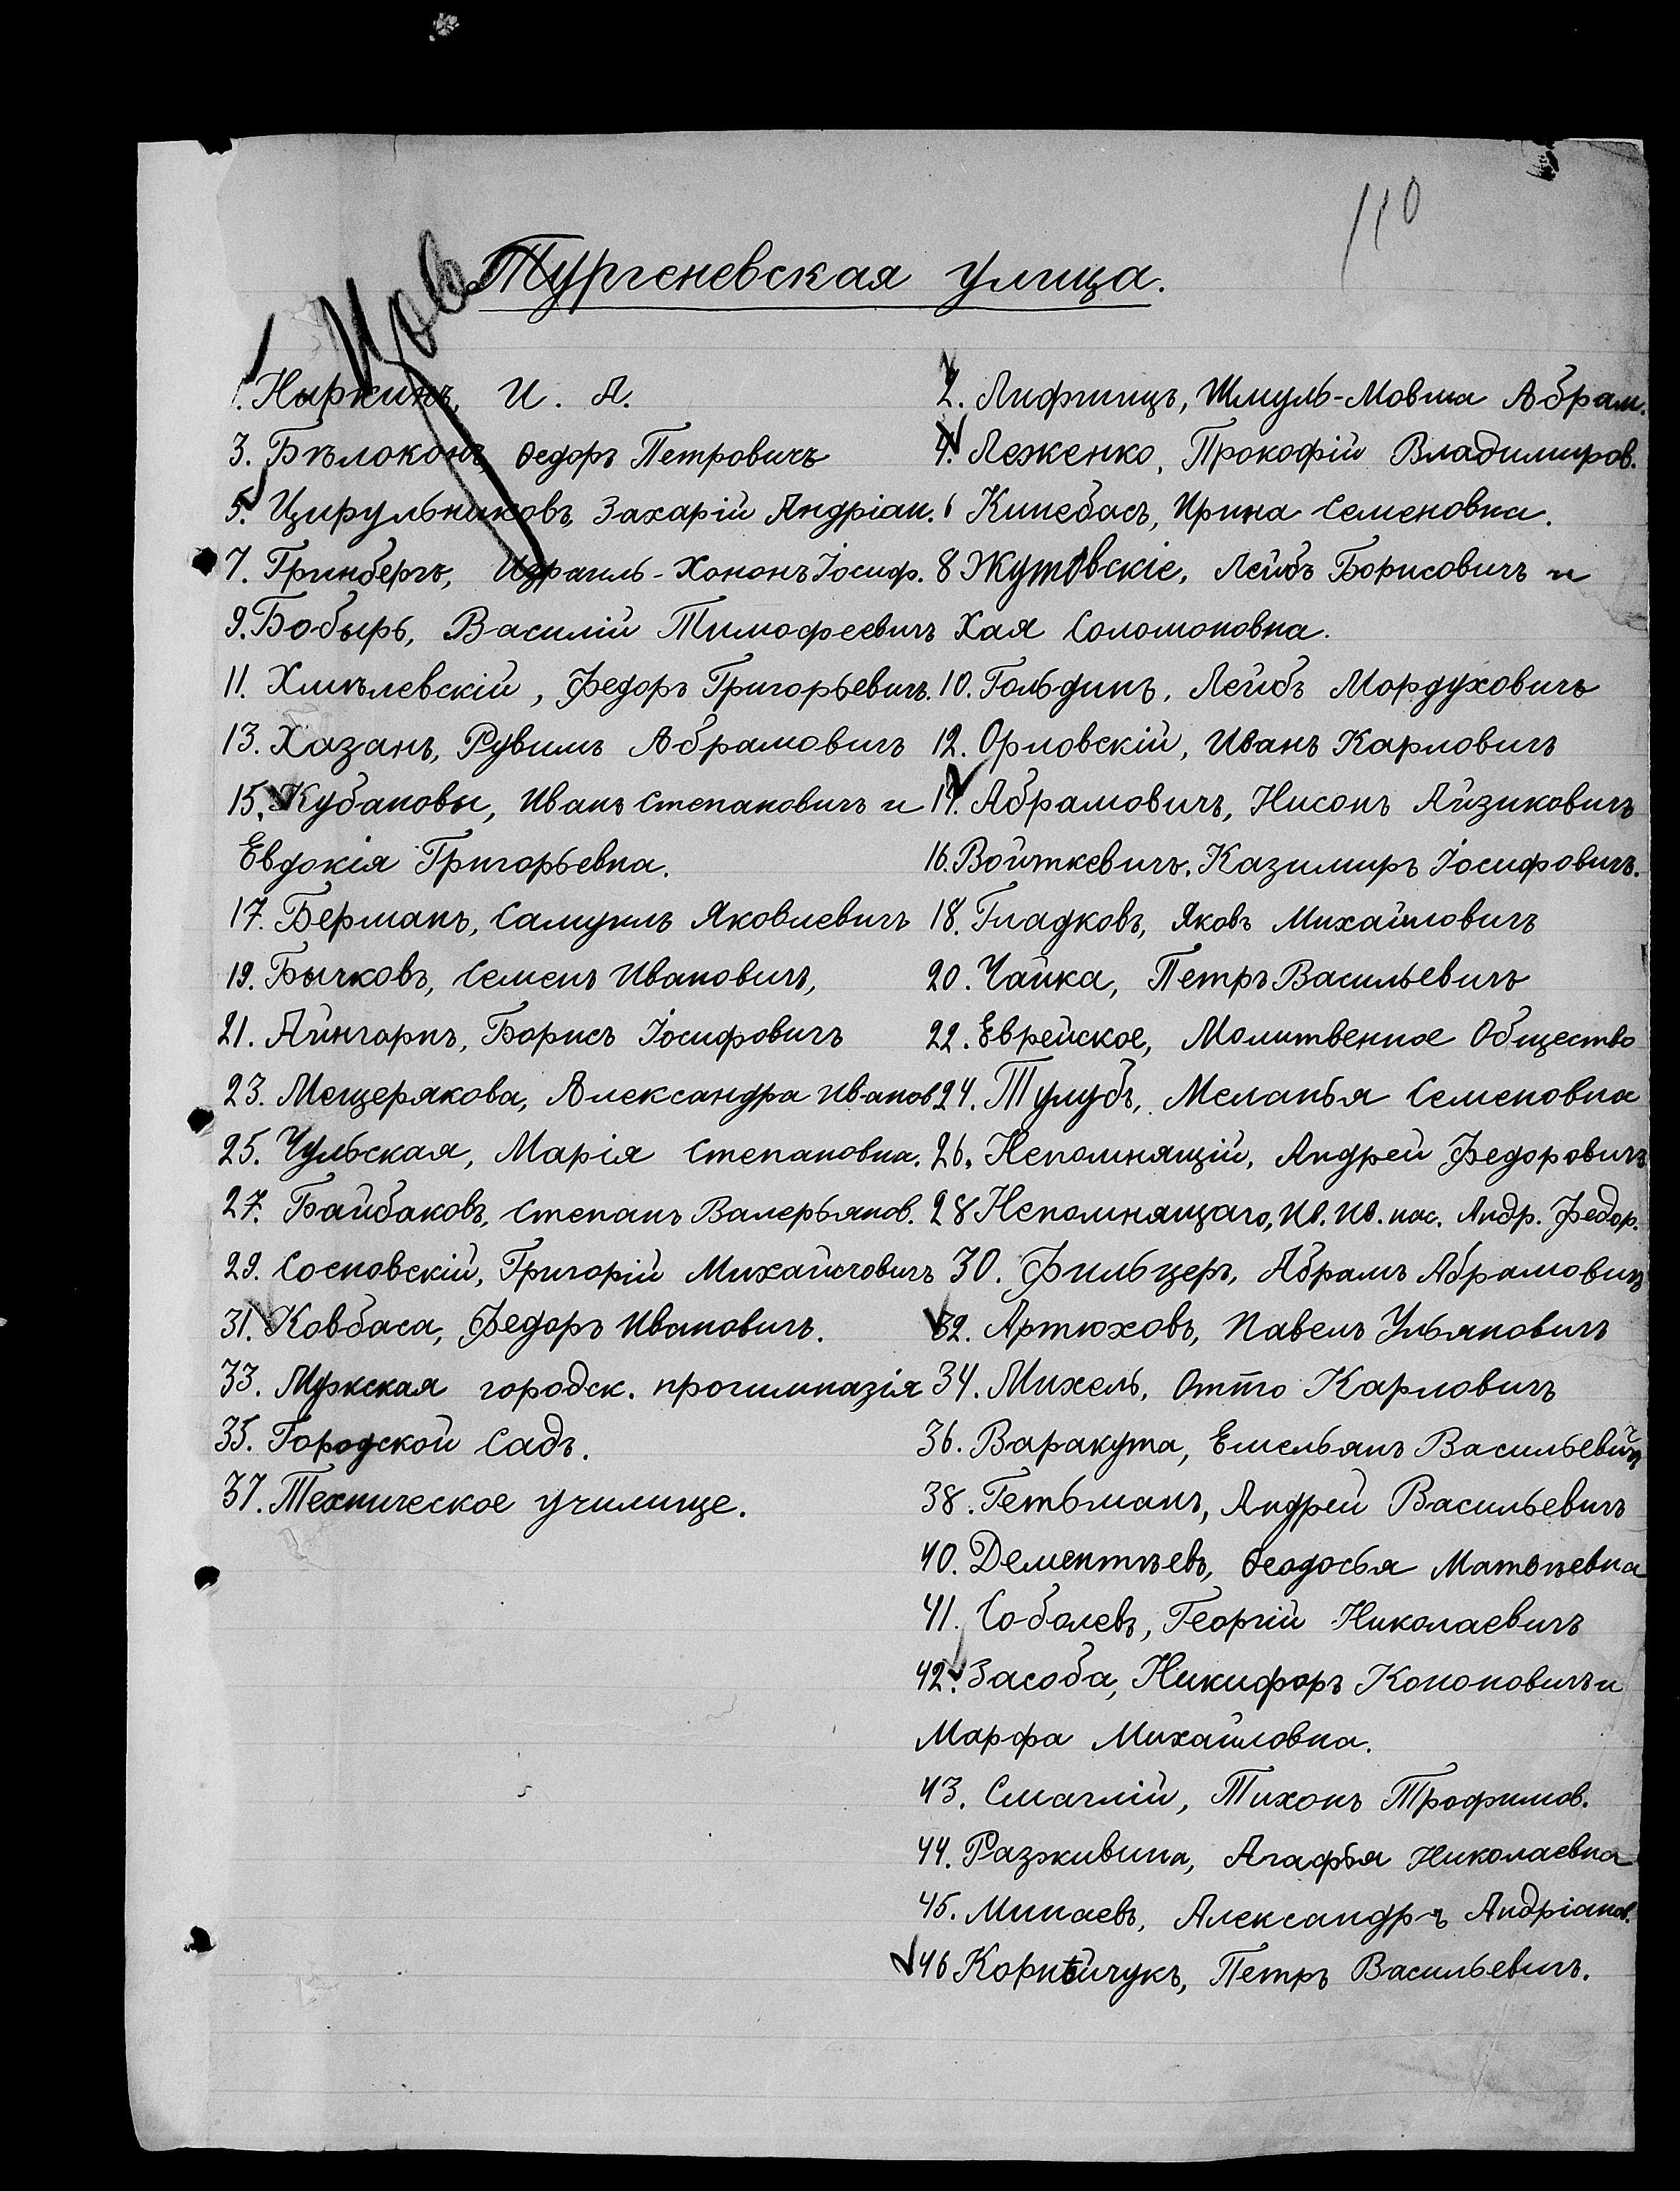 110
Тургеневская улица.
1. Ныркинъ, И. А.
3. Бѣлоконь, Ѳедоръ Петровичъ
5. Цирульниковъ, Захарій Андріан.
7. Гринбергъ, Израиль-Хононъ Іосиф.
9. Бобырь, Василій Тимофеевичъ
11. Хмѣлевскій, Федоръ Григорьевичъ.
13. Хазанъ, Рувимъ Абрамовичъ
15. Кубановы, Иванъ Степановичъ и
Евдокія Григорьевна.
17. Берманъ, Самуилъ Яковлевичъ
19. Бычковъ, Семенъ Ивановичъ,
21. Айнгорнъ, Борисъ Іосифовичъ
23. Мещерякова, Александра Иванов
25. Чульская, Марія Степановна.
27. Байбаковъ, Степанъ Валерьянов.
29. Сосновскій, Григорій Михайловичъ
31. Ковбаса, Федоръ Ивановичъ.
33. Мужская городск. прогимназія
35. Городской Садъ.
37. Техническое училище.
2. Лифшицъ, Шмуль-Мовша Абрам.
4. Леженко, Прокофій Владимиров.
6 Кинебасъ, Ирина Семеновна.
8 Жутовскіе, Лейбъ Борисовичъ и
Хая Соломоновна.
10. Гольдинъ, Лейбъ Мордуховичъ
12. Орловскій, Иванъ Карловичъ
14. Абрамовичъ, Нисонъ Айзиковичъ
16. Войткевичъ, Казимиръ Іосифовичъ.
18. Гладковъ, Яковъ Михайловичъ
20. Чайка, Петръ Васильевичъ
22. Еврейское, Молитвенное Общество
24. Тулубъ, Меланья Семеновна
26. Непомнящій, Андрей Федоровичъ
28 Непомнящаго, Ив. Ив. нас. Андр. Федор.
30. Фильцеръ, Абрамъ Абрамовичъ
32. Артюховъ, Павелъ Ульяновичъ
34. Михель, Отто Карловичъ
36. Варакута, Емельянъ Васильевичъ
38. Гетьманъ, Андрей Васильевичъ
40. Дементьевъ, Ѳеодосья Матвѣевна
41. Соболевъ, Георгій Николаевичъ
42. Засоба, Никифоръ Кононовичъ и
Марфа Михайловна.
43. Смаглій, Тихонъ Трофимов.
44. Разживина, Агафья Николаевна
45. Минаевъ, Александръ Андріанов.
46 Корнѣйчукъ, Петръ Васильевичъ.